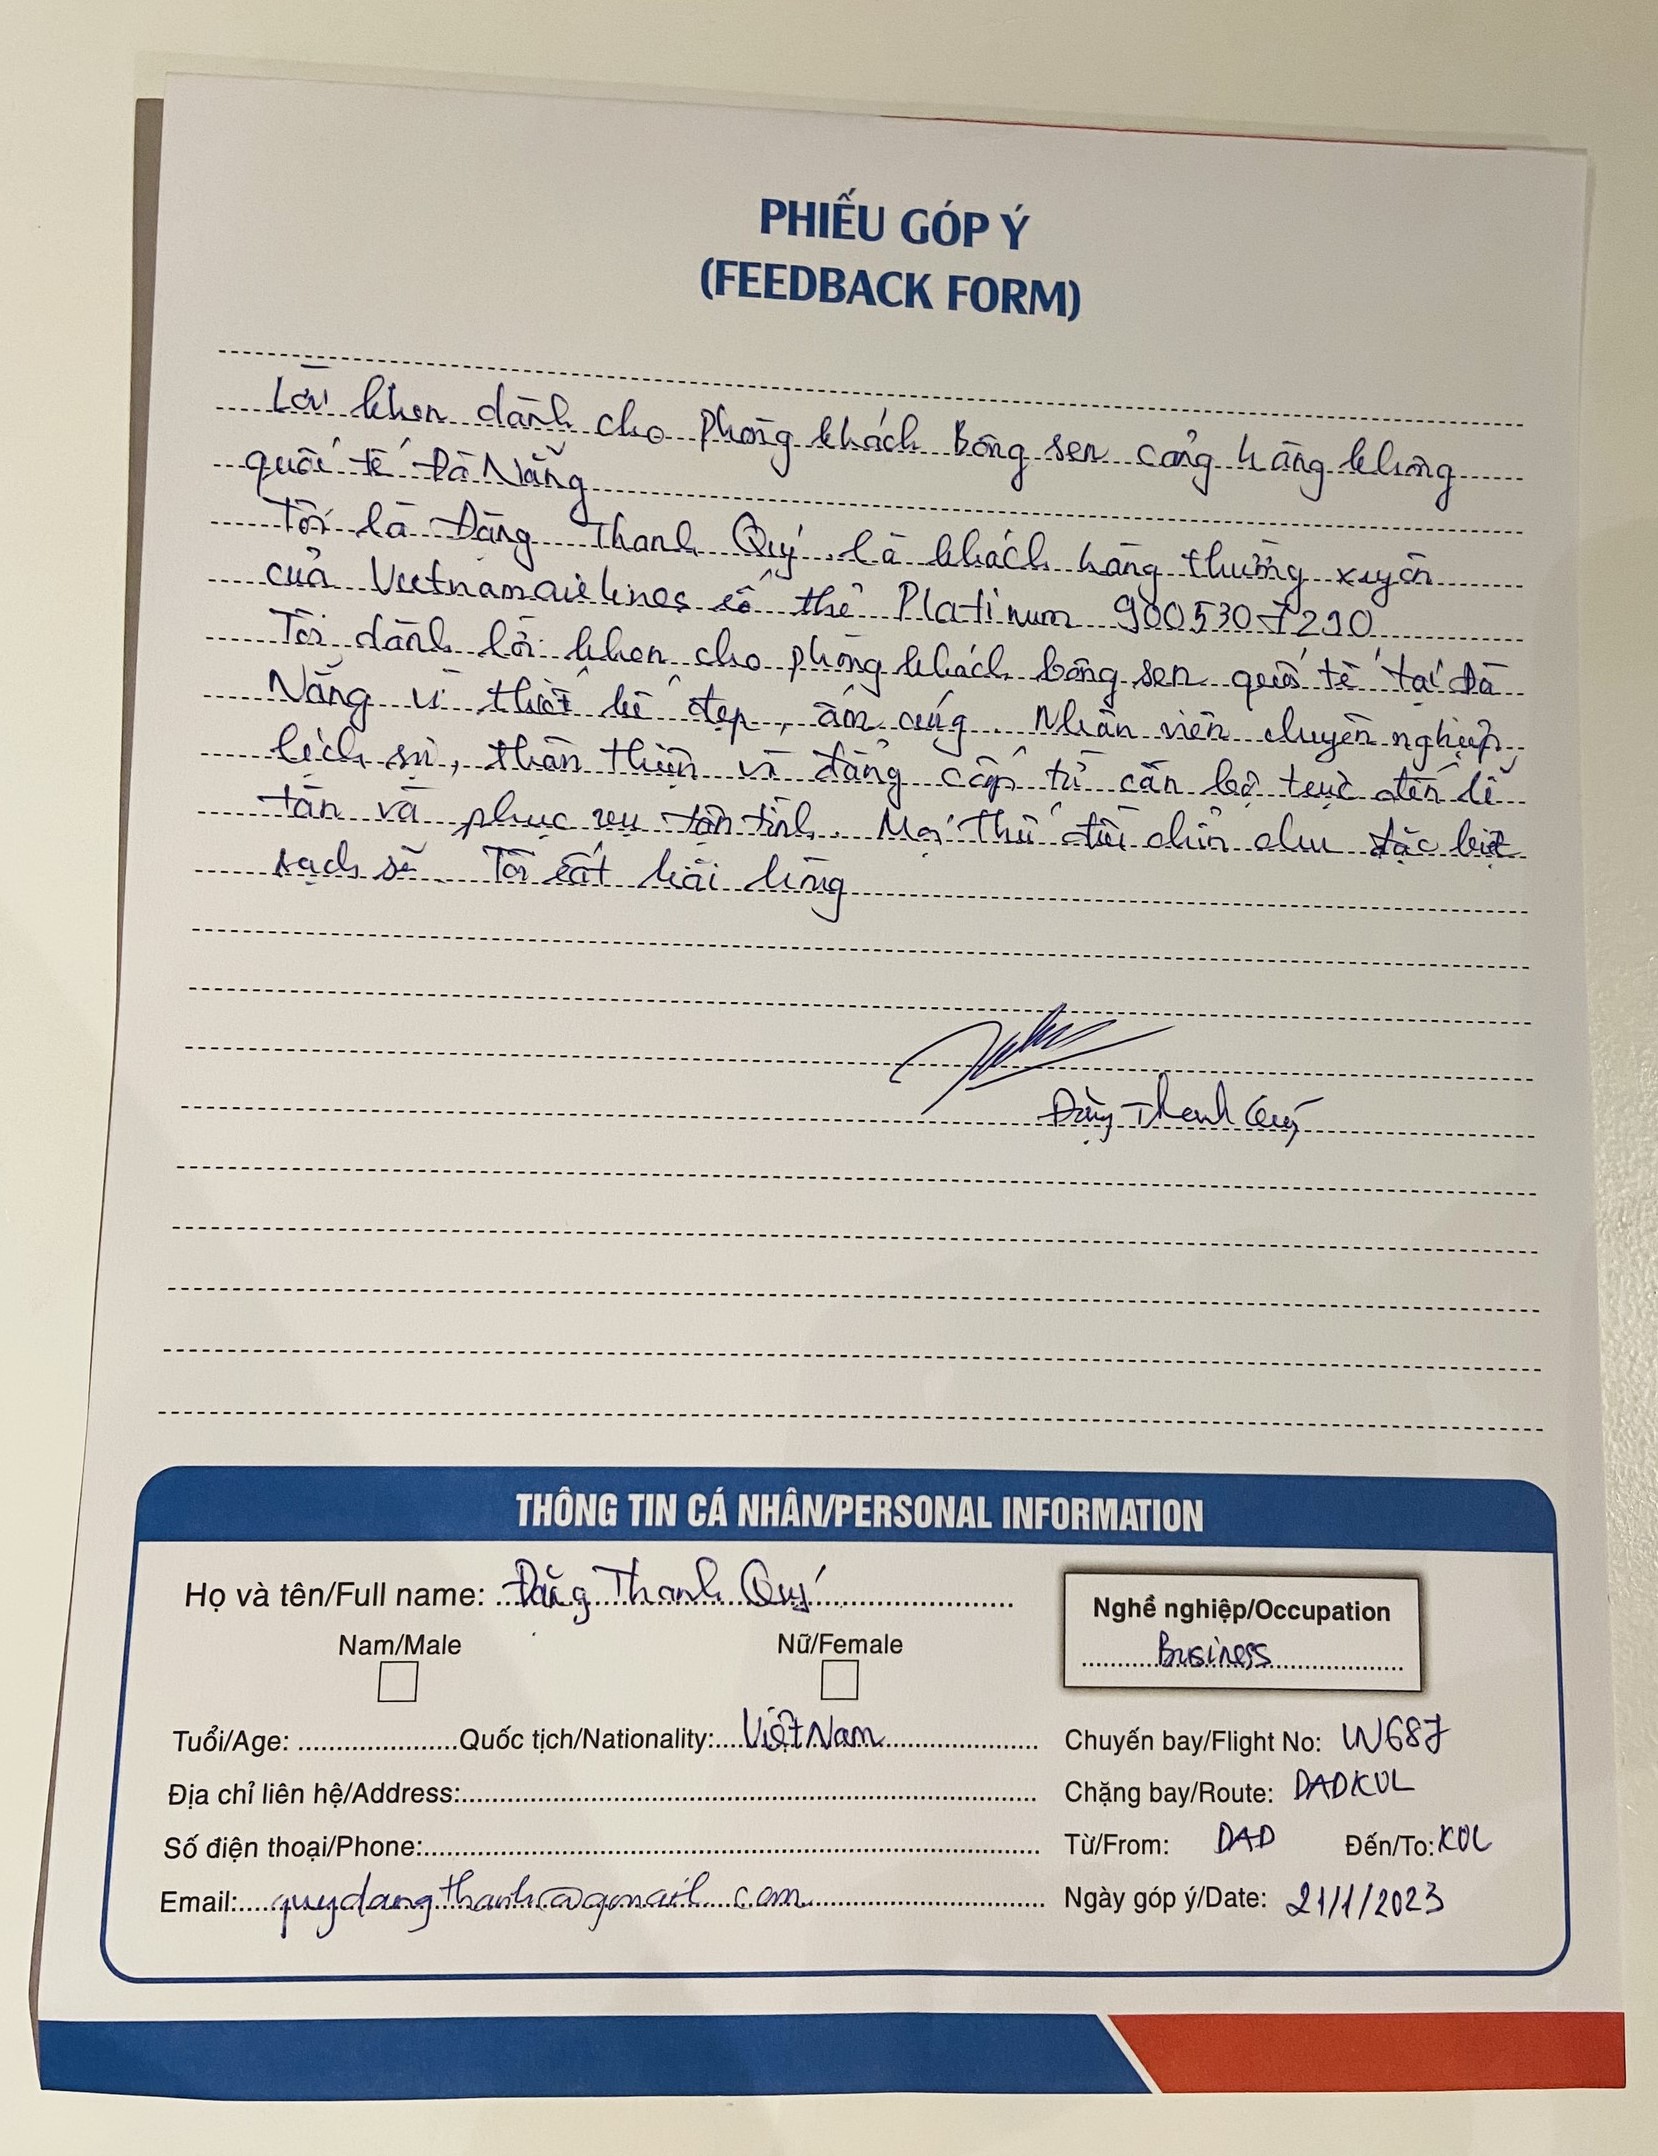 PHIẾU GÓP Ý
(FEEDBACK FORM)
Lời khen dành cho phòng khách Bông sen cảng hàng không
quốc tế Đà Nẵng
Tôi là Đặng Thanh Quý là khách hàng thường xuyên
của Vietnamairlines số thẻ Platinum 9005307290
Tôi dành lời khen cho phòng khách bông sen quốc tế tại Đà
Nẵng vì thiết kế đẹp, ấm cúng. Nhân viên chuyên nghiệp,
lịch sự, thân thiện và đẳng cấp từ cán bộ trực đến lễ
tân và phục vụ tận tình. Mọi thứ đều chỉn chu đặc biệt
sạch sẽ. Tôi rất hài lòng
Đặng Thanh Quý
THÔNG TIN CÁ NHÂN/PERSONAL INFORMATION
Họ và tên/Full name: Đặng Thanh Quý
Nghề nghiệp/Occupation
Business
Nam/Male Nữ/Female
Tuổi/Age: Quốc tịch/Nationality: Việt Nam Chuyến bay/Flight No:
Địa chỉ liên hệ/Address: Chặng bay/Route: DADKUL
Số điện thoại/Phone: Từ/From: DAD Đến/To: KUL
Email: quydangthanh@gmail.com Ngày góp ý/Date: 21/1/2023